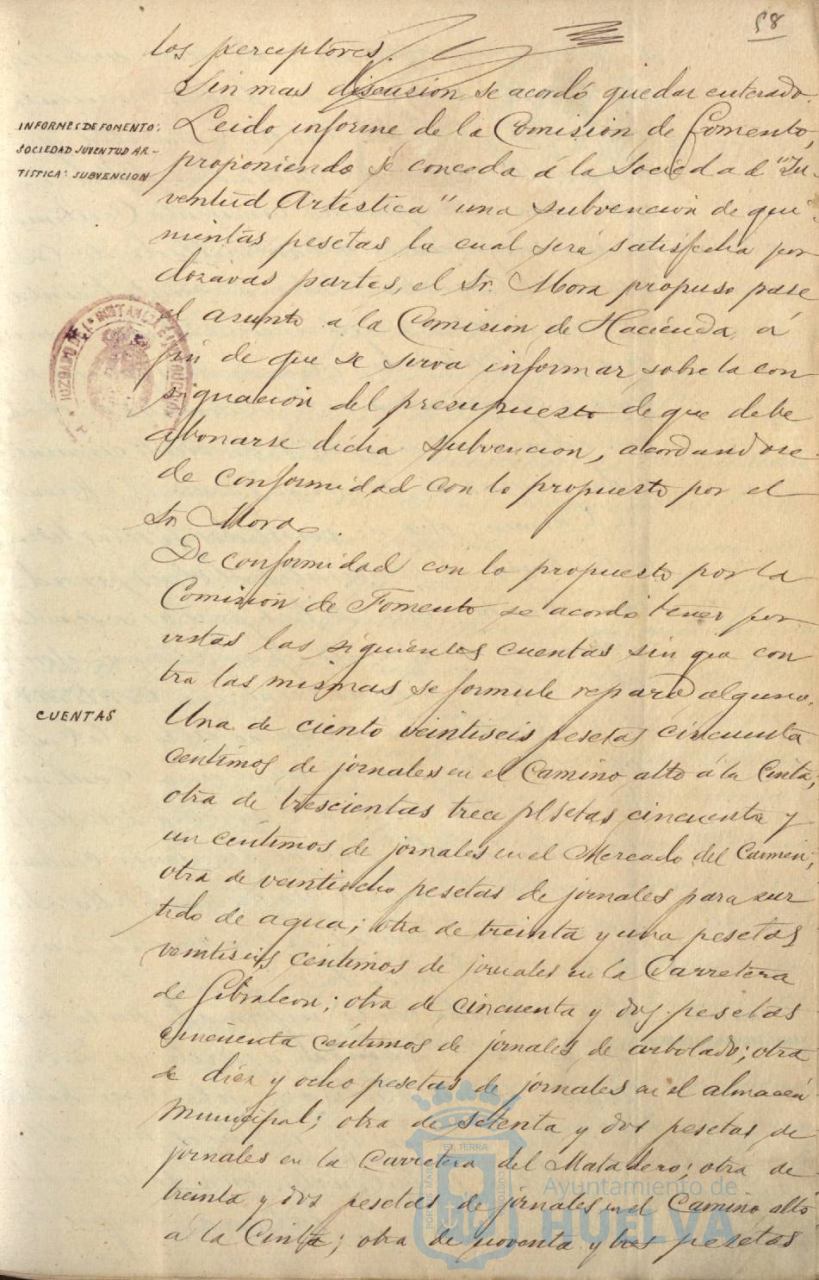 58
los perceptores.
Sin mas discusión se acordó quedar enterado.
INFORMES DE FOMENTO:
SOCIEDAD JUVENTUD AR-
TISTICA: SUBVENCION
Leido informe de la Comisión de Fomento,
proponiendo se conceda á la Sociedad "Ju-
ventud Artistica" una subvencion de qui-
nientas pesetas la cual será satisfecha por
dozavas partes, el Sr. Mora propuso pase
el asunto á la Comisión de Hacienda á
fin de que se sirva informar sobre la con
signación del presupuesto de que debe
abonarse dicha subvencion, acordandose
de conformidad con lo propuesto por el
Sr. Mora.
De conformidad con lo propuesto por la
Comisión de Fomento se acordó tener por
vistas las siguientes cuentas sin que con
tra las mismas se formule reparo alguno.
CUENTAS
Una de ciento veintiseis pesetas cincuenta
centimos de jornales en el Camino alto á la Cinta;
otra de trescientas trece pesetas cincuenta y
un céntimos de jornales en el Mercado del Carmen;
otra de veintiocho pesetas de jornales para sur
tido de agua; otra de treinta y una pesetas
veintiseis céntimos de jornales en la Carretera
de Gibraleon; otra de cincuenta y dos pesetas
cincuenta céntimos de jornales de arbolado; otra
de diez y ocho pesetas de jornales en el almacén
Municipal; otra de setenta y dos pesetas de
jornales en la Carretera del Matadero; otra de
treinta y dos pesetas de jornales en el Camino alto
á la Cinta; otra de noventa y tres pesetas
Ayuntamiento de
HUELVA